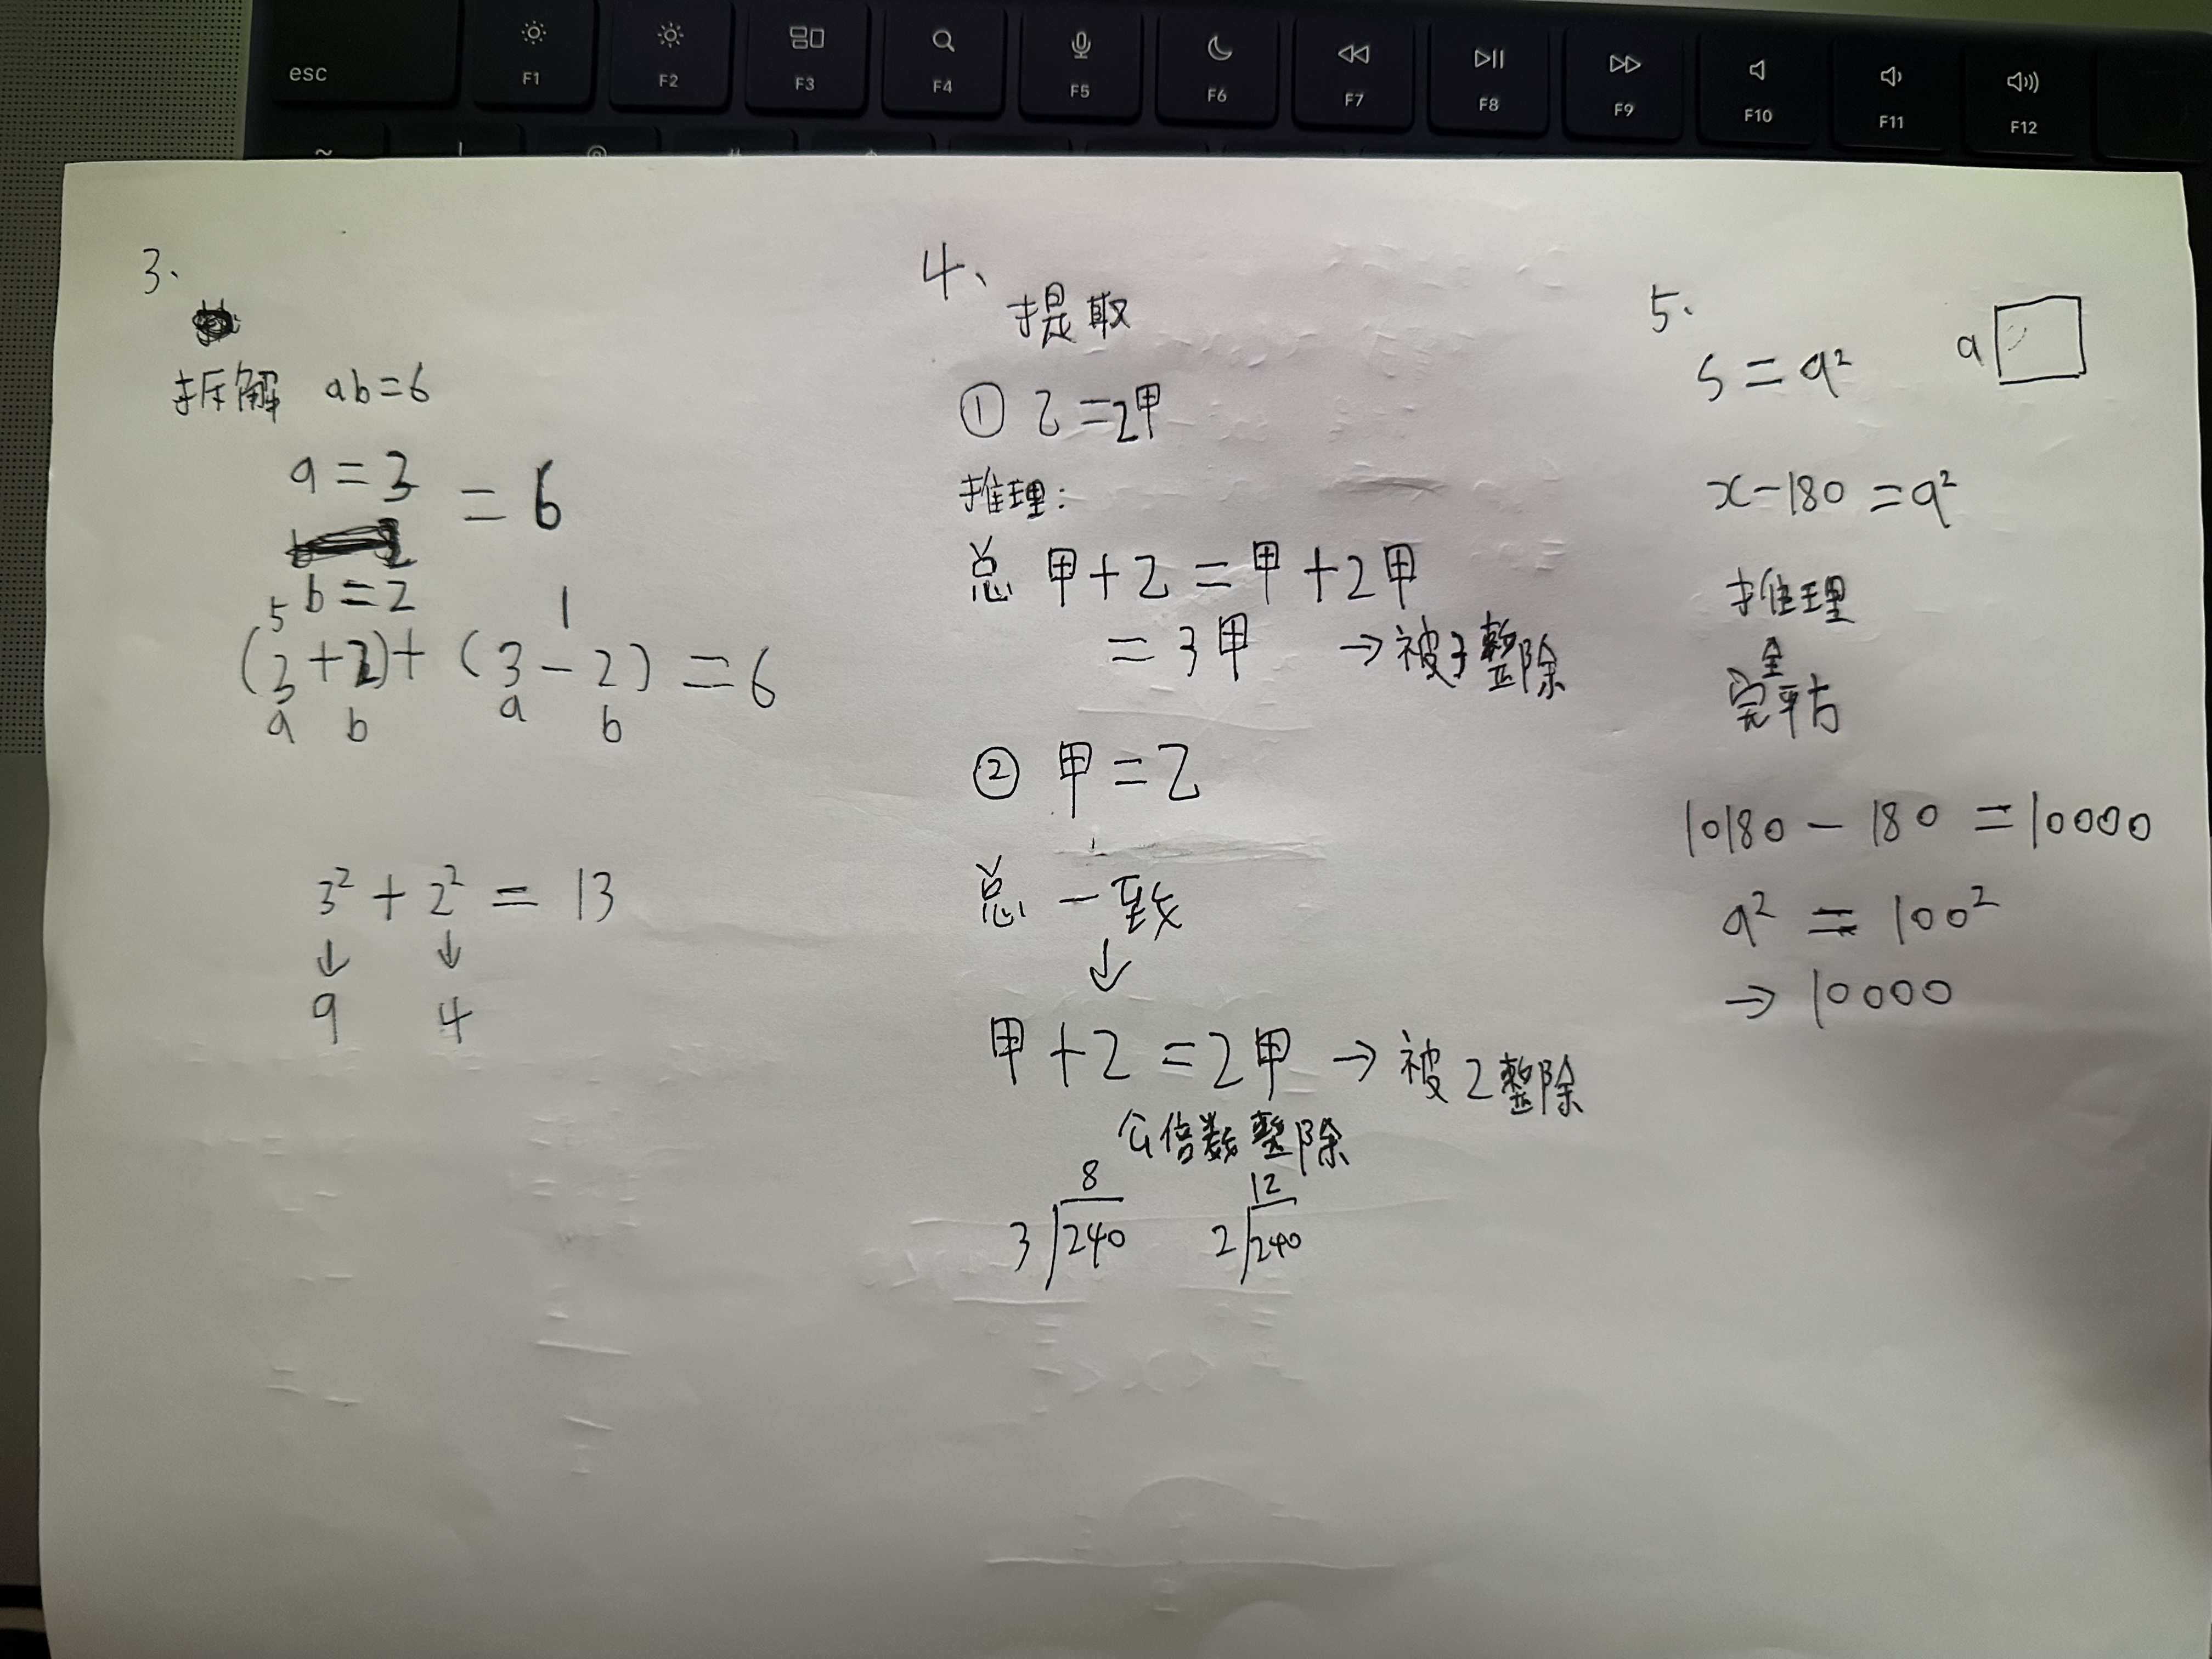 esc
F1
F2
F3
F4
F5
F6
F7
F8
F9
F10
F11
F12
3、
拆解 ab=6
a=3 =6
b=2
5 1
(3+2)+(3-2)=6
a b a b
3²+2²=13
↓ ↓
9 4
4、
提取
① 乙=2甲
推理:
总 甲+乙=甲+2甲
=3甲 →被3整除
② 甲=乙
总一致
↓
甲+乙=2甲→被2整除
公倍数整除
8 12
3 240 2 240
5.
a
S=a²
x-180=a²
推理
完全平方
10180-180=10000
a²=100²
→10000